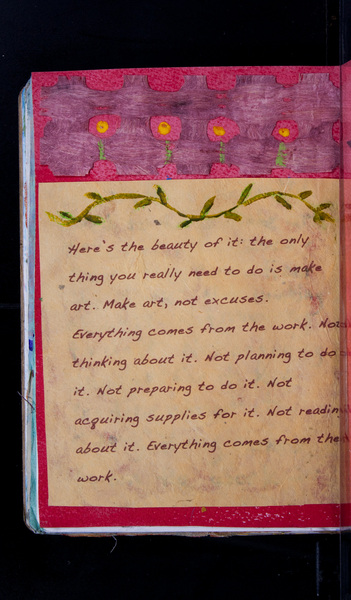 Here's the beauty of it: the only
thing you really need to do is make
art. Make art, not excuses.
Everything comes from the work. Not
thinking about it. Not planning to do
it. Not preparing to do it. Not
acquiring supplies for it. Not reading
about it. Everything comes from the
work.